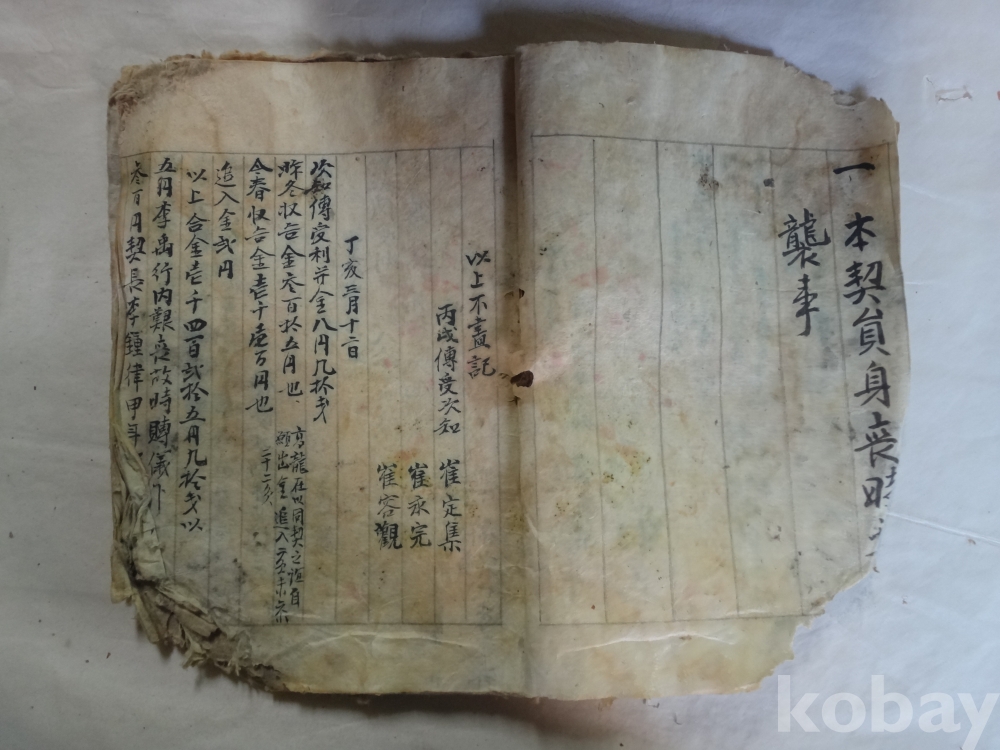 一 本契員身喪時
襲事
以上不盡記
丙戌傳受次知 崔定集
崔永完
崔容觀
丁亥三月十二日
次知傳受利并金八円几拾戔
昨冬収合金叁百拾五円也
今春収合金壱千壱百円也
高龍在以同契之誼自
願出金追入
追入金弐円
以上合金壱千四百弐拾五円几拾戔以
五月李禹行内艱喪故時賻儀下
叁百円契長李鍾律甲年
kobay